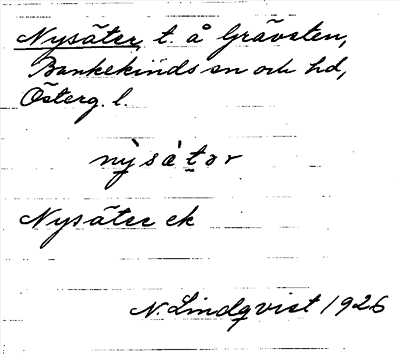 Nysäter, t. å Grävsten,
Bankekinds sn och hd,
Österg. l.
nỳsátər
Nysäter ek
N. Lindqvist 1926